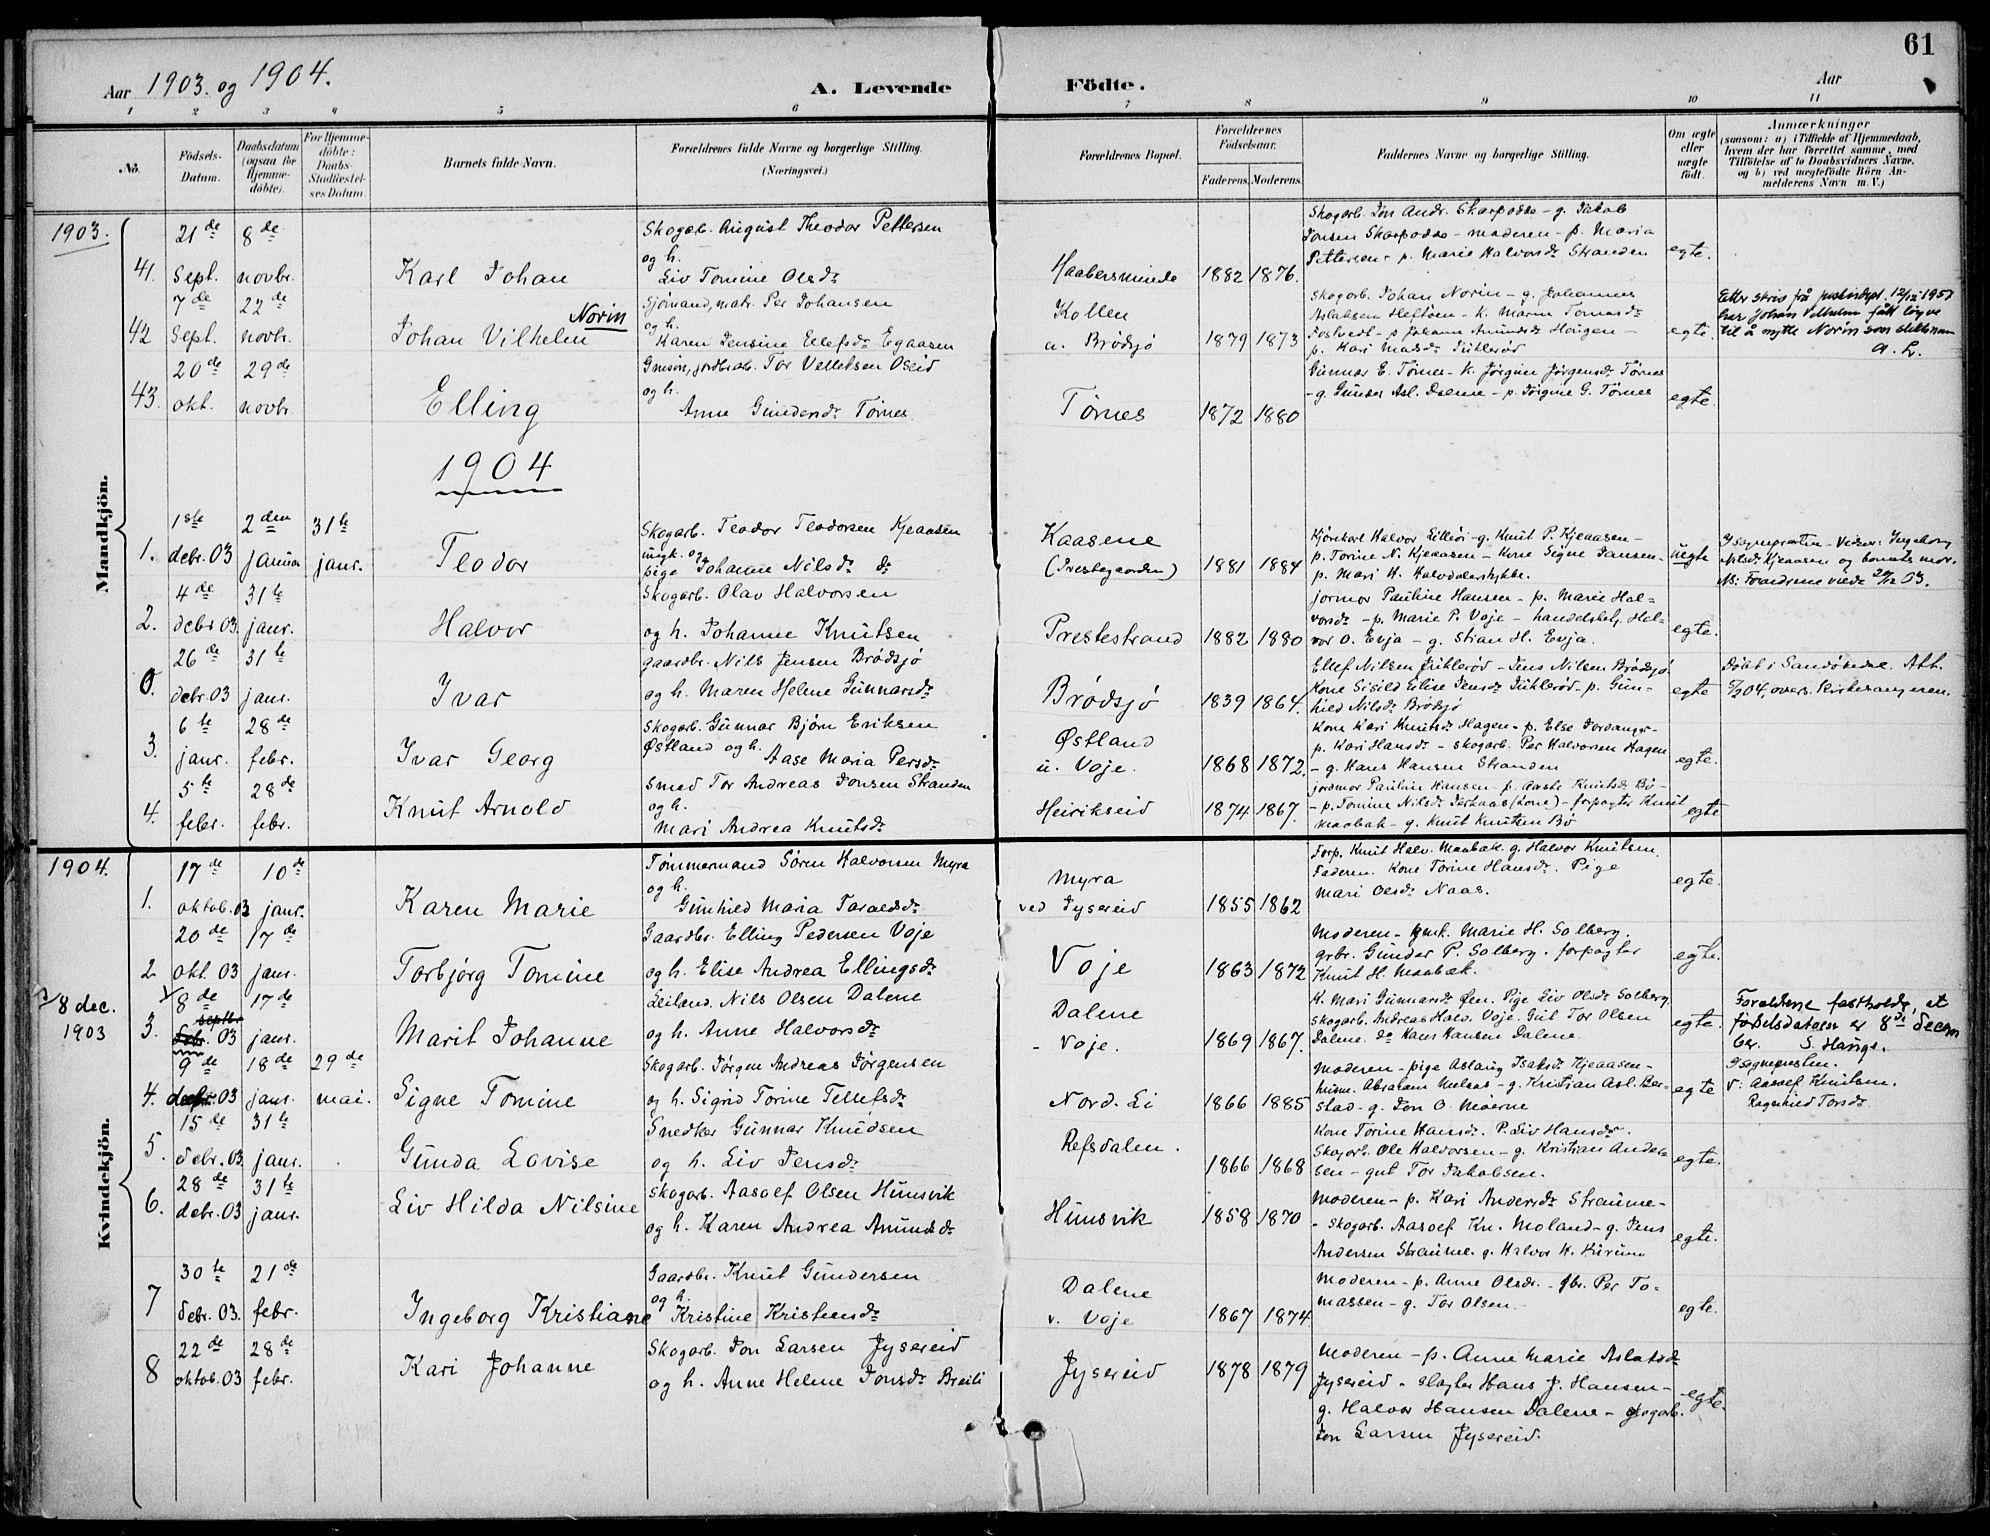 61
Aar 1903. og 1904.
A. Levende Födte.
Aar
1 2 3 4 5 6 7 8 9 10 11
No.
Födsels-Datum.
Daabsdatum (ogsaa for Hjemmedöbte).
For Hjemmedöbte: Daabs-Stadfæstelses Datum.
Barnets fulde Navn.
Forældrenes fulde Navne og borgerlige Stilling. (Næringsvei.)
Forældrenes Bopæl.
Forældrenes Födselsaar.
Faderens. Moderens.
Faddernes Navne og borgerlige Stilling.
Om ægte eller uægte födt.
Anmærkninger
(saasom: a) i Tilfælde af Hjemmedaab, hvem der har forrettet samme, med Tilföielse af to Daabsvidners Navne, og b) ved uægtefödte Börn Anmelderens Navn m. V.)
Mandkjön.
1903.
41 21de Sept. 8de novbr. Karl Johan
Skogarb. August Theodor Pettersen
og h.
Liv Tomine Olsdr
Haabersminde 1882 1876.
Skogarb. Jon Andr. Skarpodde - g. Jakob
Jonsen Skarpodde - moderen - p. Maria
Pettersen - p. Marie Halvorsdr Stranden
egte.
42 7de Sept. 22de novbr. Johan Vilhelm Norin
Sjømand, matr. Per Johansen
og h.
Karen Jensine Ellefsdr Egaasen
Kollen
u. Brødsjø 1879 1873
Skogarb. Johan Norin - g. Johannes
Aslaksen Heftøen - k. Maren Tomasdr
egte.
har Johan Vilhelm fått løyve
til å nytte Norin som slektsnam
43. 20de okt. 29de novbr. Elling
Tor Velletsen Oseid
og h.
Anne Gundersdr Tørnes
Tørnes 1872 1880
Gunnar E. Tørnes - k. Jørgine Jørgensdr Tørnes
- g. Gunder Asl. Dalene - p. Jørgine G. Tørnes
egte.
1904
1. 1ste debr. 03 2den januar 31te janr. Teodor
Skogarb. Teodor Teodorsen Kjeaasen
ungk. og
pige Johanne Nilsdr dr
Kaasene
(Prestegaarden) 1881 1884
Kjørekarl Halvor Lilleøi - g. Knut P. Kjeaasen -
p. Torine N. Kjeaasen - Kone Signe Jansen -
p. Mari H. Halvdalershykke.
uegte
Sognepræsten - Vidner: Ingeborg
Nilsdr Kjeaasen og barnets mor.
2. 4de debr 03. 31te janr. Halvor
Skogarb. Olav Halvorsen
og h. Johanne Knutsen
Prestestrand 1882 1880
jormor Pauline Hansen - p. Marie Hal=
vorsdr - p. Marie P. Voje - handelsbetj. Hal-
vor O. Evja - g. Stian H. Evja.
egte.
0. 26de debr. 03 31te janr. Ivar
gaardbr. Nils Jensen Brødsjø
og h. Maren Helene Gunnarsdr
Brødsjø 1839 1864.
Ellef Nilsen Juklerød - Jens Nilsen Brødsjø
Kone Sisild Elise Jensdr Juklerød - p. Gun-
hild Nilsdr Brødsjø
egte
Døbt i Sandøkedal. Att.
3. 6te janr. 28de febr. Ivar Georg
Skogarb. Gunnar Bjørn Eriksen
Østland og h. Aase Maria Persdr
Østland
u. Voje. 1868 1872.
Kone Kari Knutsdr Hagen - p. Else
p. Kari Hansdr - skogarb. Per Halvorsen Hagen
- g. Hans Hansen Stranden
egte.
4. 5te febr. 28de febr. Knut Arnold
Smed Tor Andreas Jonsen Stranden
og h.
Mari Andrea Knutsdr
Heirikseid 1874 1867.
jordmor Pauline Hansen - p. Aaste Knutsdr Bø -
- p. Tomine Nilsdr (Kone) - forpagter Knut
Maabæk - g. Knut Knutsen Bø
egte
Kvindekjön.
1904.
1. 17de oktob. 03 10de janr. Karen Marie
Tømmermand Søren Halvorsen Myra
og h.
Gunhild Maria Taraldsdr
Myra
ved Jysereid 1855 1862
Forp. Knut Halv. Maabæk. g. Halvor Knutsen.
Faderen. Kone Torine Hansdr. Pige
Mari Olsdr Naas.
egte.
2 20de okt. 03 17de janr. Torbjørg Tomine
Gaardbr. Elling Pedersen Voje
og h. Elise Andrea Ellingsdr
Voje 1863 1872
Moderen - Enk. Marie H. Solberg.
grbr. Gunder P. Solberg. forpagter
Knut H. Maabæk.
egte.
8 dec.
1903
3. 8de septbr 03 17de janr. Marit Johanne
Leiland. Nils Olsen Dalene
og h. Anne Halvorsdr
Dalene
- Voje. 1869 1867.
K. Mari Gunnarsdr Øen. Pige Liv Olsdr Solberg.
Skogarb. Andreas Halv. Voje. Gut Tor Olsen
Dalene. do Hans Hansen Dalene.
egte.
Foreldrene fastholde, at
fødselsdatoen er 8de decem
ber. S. Hauge.
4. 9de 03 18de janr. 29de mai. Signe Tomine
Skogarb. Jørgen Andreas Jørgensen
og h. Sigrid Torine Tellefsdr
Nord. Li 1866 1885
Moderen - pige Aslaug Isaksdr Kjeaasen -
husm. Abraham Nielsen - g. Kristian Asl. Ber-
stad - g. Jon O. Moerne
egte
Sognepresten.
V: Aasolf Knutsen.
Ragnhild Torsdr
5. 15de debr. 03. 31te janr. Gunda Lovise
Snedker Gunnar Knudsen
og h. Liv Jensdr
Refsdalen. 1866 1868
Kone Torine Hansdr. P. Liv Hansdr.
Skogarb. Ole Halvorsen - g. Kristian Ander-
sen - gut Tor Jakobsen.
egte.
6. 28de debr. 03 31te janr. Liv Hilda Nilsine
Skogarb. Aasolf Olsen Humsvik
og h. Karen Andrea Amundsdr
Humsvik 1858 1870
Moderen - p. Kari Andersdr Straume -
- skogarb. Aasolf Kn. Moland - g. Jens
Andersen Straume. g. Halvor H. Kurum
egte.
7 30te debr. 03. 21de febr. Ingeborg Kristiane
Gaardbr. Knut Gundersen
og h.
Kristine Kristensdr
Dalene
v. Voje 1867 1874
Moderen - p. Anne Olsdr. - gbr. Per To-
massen - g. Tor Olsen.
egte.
8 22de oktob. 03 28de febr. Kari Johanne
Skogarb. Jon Larsen Jysereid
og h. Anne Helene Jonsdr Breili
Jysereid 1878 1879
Moderen - p. Anne Marie Aslaksdr
Jysereid - slagter Hans J. Hansen -
g. Halvor Hansen Dalene - skogarb.
Jon Larsen Jysereid.
egte.